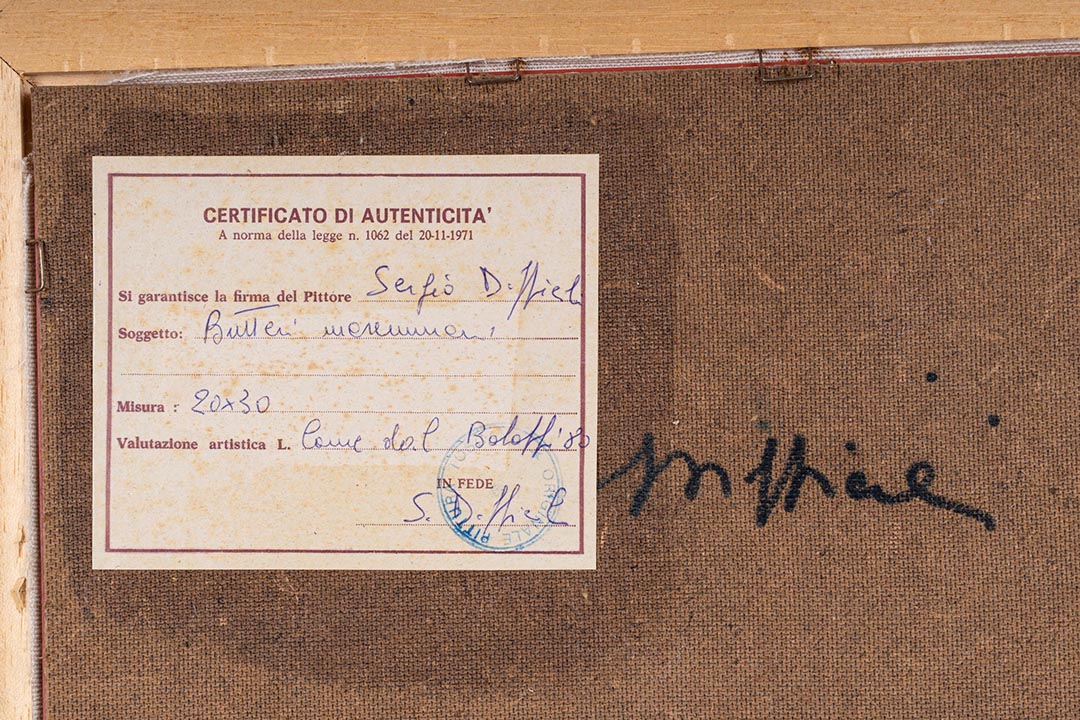 CERTIFICATO DI AUTENTICITA'
A norma della legge n. 1062 del 20-11-1971
Si garantisce la firma del Pittore Sergio Difficili
Soggetto: Butteri maremmani
Misura : 20x30
Valutazione artistica L. Come dal Bolaffi 80
IN FEDE
S.
PITTURA ORIGINALE